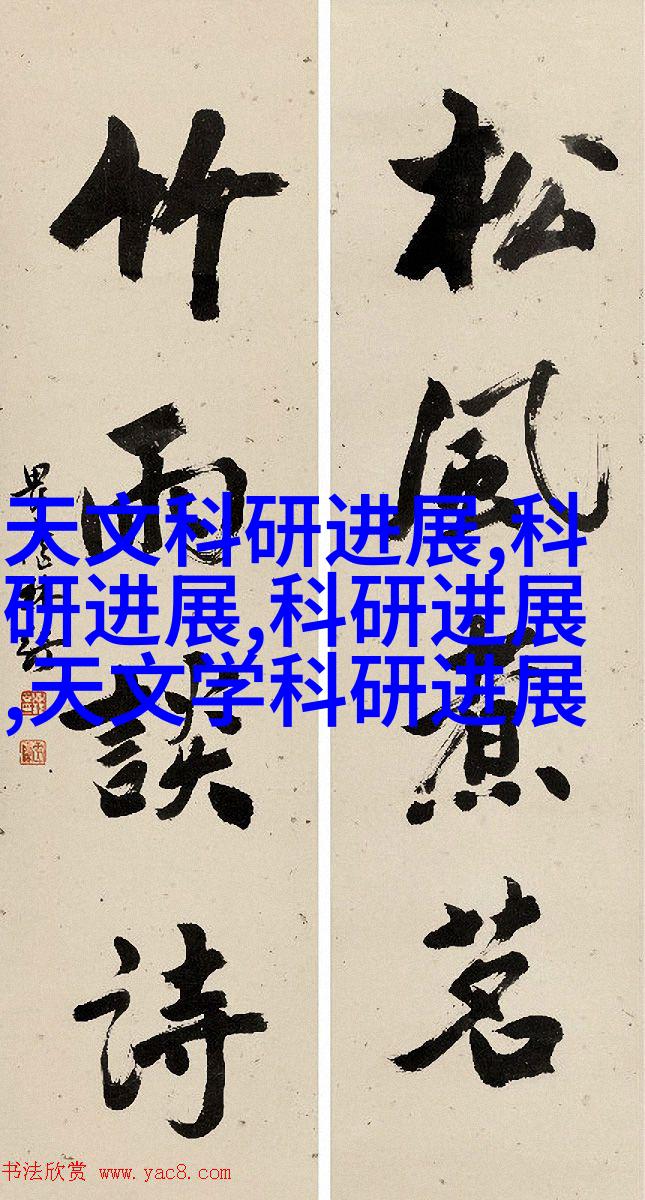 松风煮茗
竹雨談诗
天文科研进展,科
研进展,科研进展
,天文学科研进展
书法欣赏 www.yac8.com